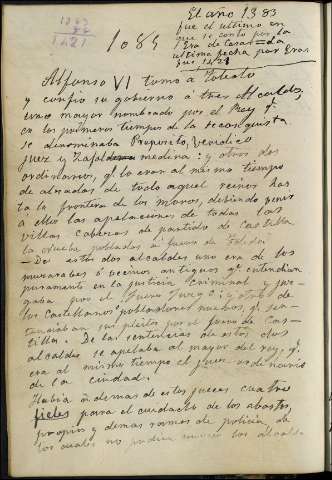 1083
1421
El año 1383
fue el ultimo en
que se conto por la
Era de Cesar
ultima fecha por Eras
fue 1421
1085
Alfonso VI tomó a Toledo
y confió su gobierno á tres Alcaldes,
uno mayor nombrado por el Rey q.
en los primeros tiempos de la reconquista
se denominaba Preposito, veridico
juez y Zafal medina: y otros dos
ordinarios, q. lo eran al mismo tiempo
de alzadas de todo aquel reino has
ta la frontera de los moros, debiendo venir
a ellos las apelaciones de todas las
villas cabezas de partido de Castilla
la nueva pobladas á fuero de Toledo
— De estos dos alcaldes uno era de los
muzarabes ó vecinos antiguos q. entendian
puramente en la justicia criminal y juz-
gaba por el Fuero Juzgo: y otro de
los Castellanos pobladores nuevos, q. sen-
tenciaban sus pleitos por el fuero de Cas-
tilla. De las sentencias de estos dos
alcaldes se apelaba al mayor del rey, q.
era al mismo tiempo el juez ordinario
de la ciudad.
Había ademas de estos jueces cuatro
fieles para el cuidado de los abastos,
propios y demas ramos de policia de
los cuales no podian conocer los alcalde